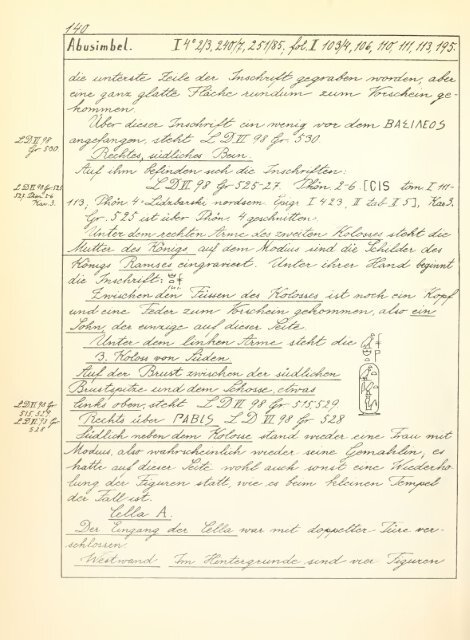 140
Abusimbel. I 4° 2/3, 240/7, 251/85, fol. I 103/4, 106, 110, 111, 113, 195.
die unterste Zeile der Inschrift gegraben worden, aber
eine ganz glatte Fläche rundum zum Vorschein ge-
kommen.
Über dieser Inschrift ein wenig vor dem ΒΑΣΙΛΕΟΣ
L D VI 98
Gr 530.
angefangen, steht L D VI. 98 Gr. 530.
Rechtes, südliches Bein.
Auf ihm befinden sich die Inschriften:
L D VI. 98 Gr 525-27. Phön. 2-6. [CIS tom I 111-
113, Phön 4 = Lidzbarski nordsem. Epigr. I 423, II tab I 5], Kar 3.
Gr. 525 ist über Phön. 4 geschnitten.
Unter dem rechten Arme des zweiten Kolosses steht die
Mutter des Königs, auf dem Modius sind die Schilder des
Königs Ramses eingraviert. Unter ihrer Hand beginnt
die Inschrift:
Zwischen den Füssen des Kolosses ist noch ein Kopf
und eine Feder zum Vorschein gekommen, also ein
Sohn, der einzige auf dieser Seite.
Unter dem linken Arme steht die
3. Koloss von Süden.
Auf der Brust zwischen der südlichen
Brustspitze und dem Schosse, etwas
L D VI. 98 Gr
515, 529.
L D VI. 98 Gr
528
links oben, steht L D VI 98 Gr 515, 529.
Rechts über PABIS L D VI 98 Gr 528
Südlich neben dem Kolosse stand wieder eine Frau mit
Modius, also wahrscheinlich wieder seine Gemahlin; es
hatte auf dieser Seite wohl auch sonst eine Wiederho-
lung der Figuren statt, wie es beim kleinen Tempel
der Fall ist.
Cella A.
Der Eingang der Cella war mit doppelter Türe ver-
schlossen.
Westwand Im Hintergrunde sind vier Figuren